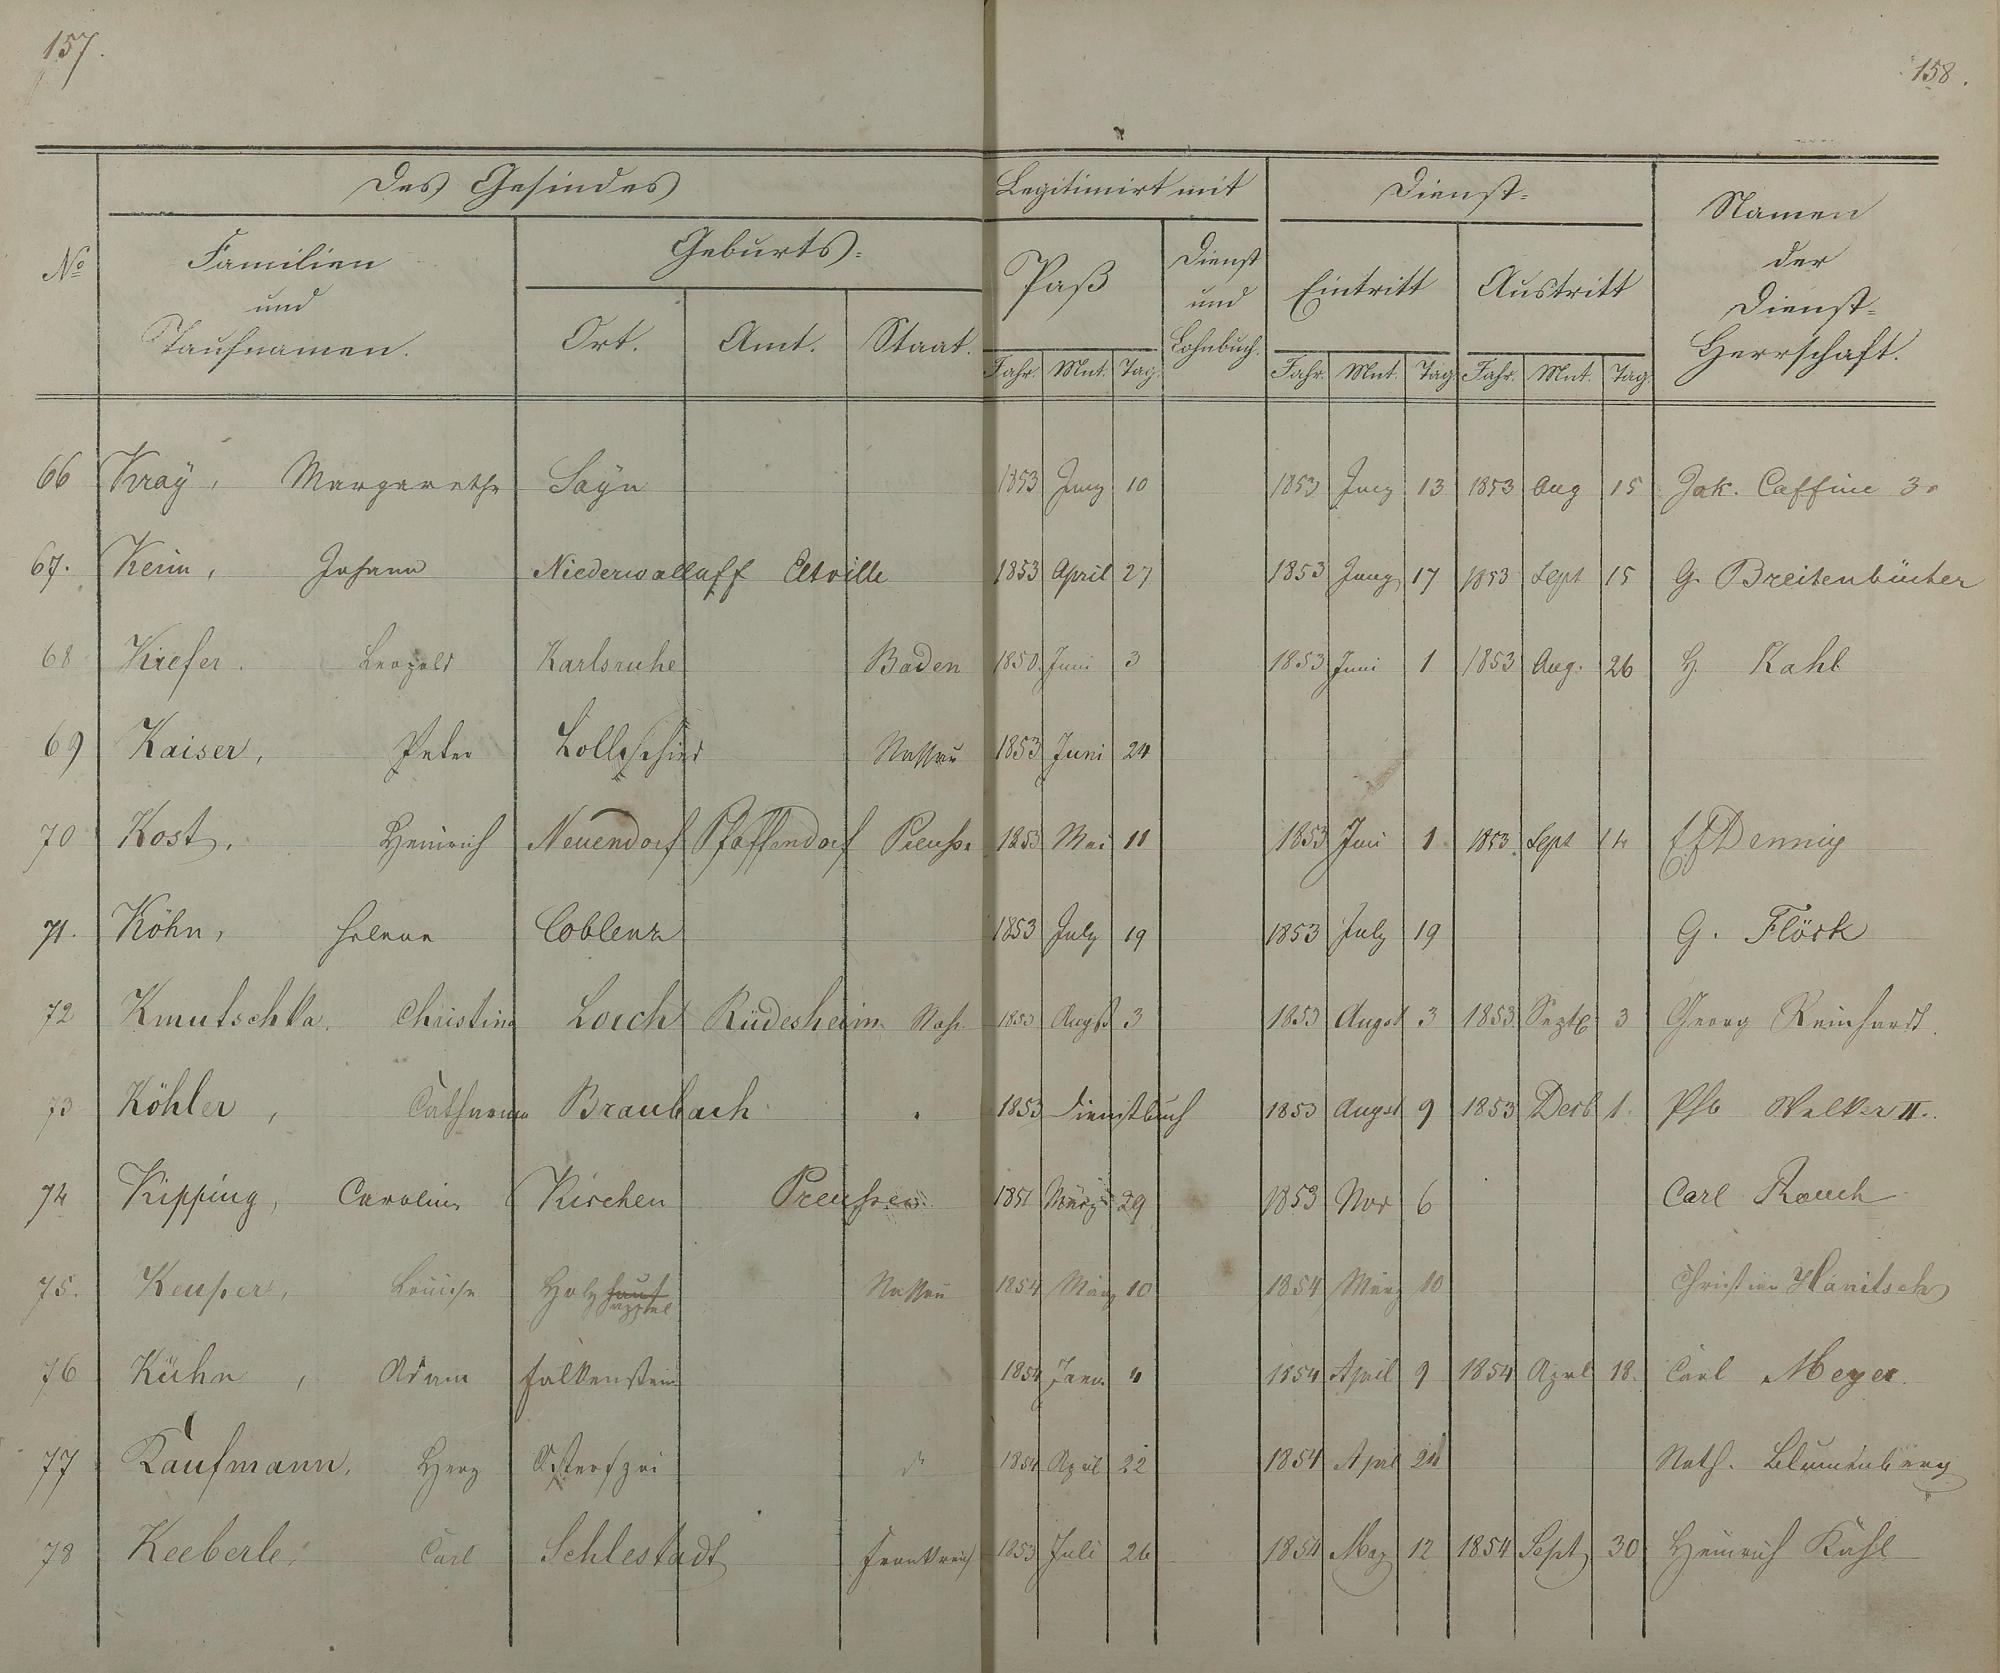 157.
158.
Des Gesindes
Legitimirt mit
Dienst-
Namen
der
Dienst-
Herrschaft.
No
Familien
und
Taufnamen.
Geburts-
Paß
Dienst
und
Lohnbuch.
Eintritt
Austritt
Ort. Amt. Staat.
Jahr. Mnt. Tag. Jahr. Mnt. Tag. Jahr. Mnt. Tag.
66 Kray, Margarethe Sayn 1853 Juny 10 1853 Juny 13 1853 Aug 15 Jak. Caffine
67. Keim, Johann Niederwalluff Eltville 1853 April 27 1853 Juny 17 1853 Sept 15 G. Breitenbücher
68 Kiefer. Leopold Karlsruhe Baden 1850 Juni 3 1853 Juni 1 1853 Aug. 26 H. Kahl
69 Kaiser, Peter Lollschied Nassau 1853 Juni 24
70 Kost, Heinrich Neuendorf Pfaffendorf Preuße 1853 Mai 11 1853 Juni 1 1853 Sept 14 Dennig
71. Köhn, Helene Coblenz 1853 July 19 1853 July 19 G. Flöck
72 Kmutschka, Christina Lorch Rüdesheim Naß. 1853 Augst 3 1853 Augst 3 1853 Septb 3 Georg Reinhardt.
73 Köhler, Catharina Braubach 1853 Dienstbuch 1853 Augst 9 1853 Decb 1. Phl Walker II.
74 Kipping, Caroline Kirchen Preußen 1851 März 29 1853 Nov 6 Carl Rauch
75. Keuper, Louise Holzappel Nassau 1854 März 10 1854 März 10 Christian Hanitsch
76 Kühn, Adam Falkenstein 1854 Janr. 4 1854 April 9 1854 Aprl 18. Carl Meyer.
77 Kaufmann, Herz Osterspai 1854 April 22 1854 Aprl 24 Nath. Blumenberg
78 Keeberle, Carl Schlestadt Frankreich 1853 Juli 26 1854 May 12 1854 Sept 30 Heinrich Kahl